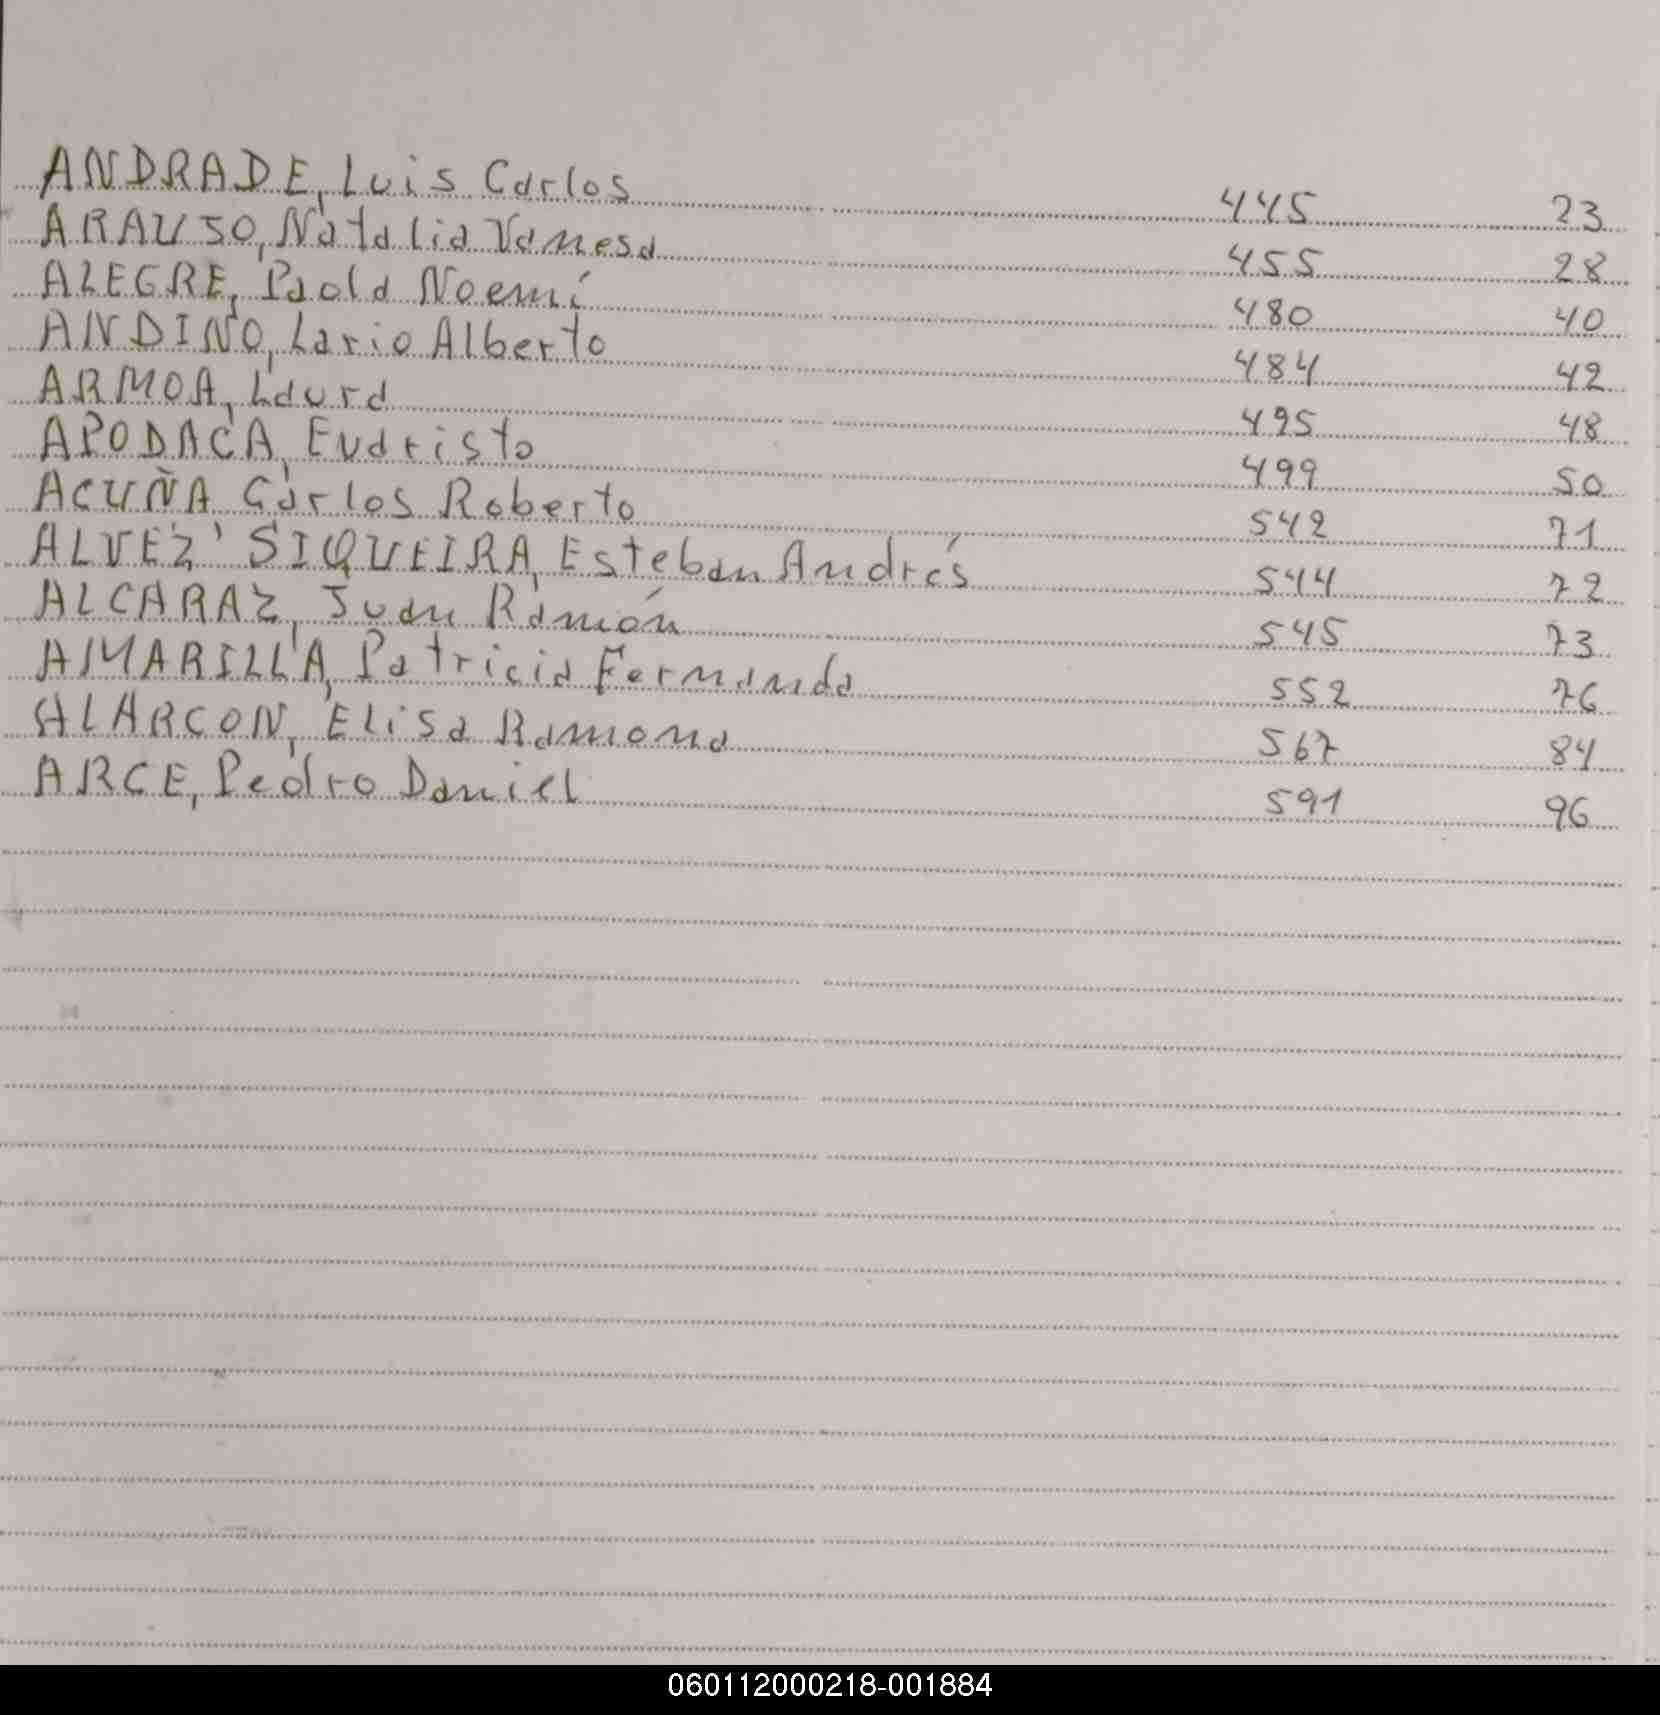 ANDRADE, Luis Carlos 445 23
ARAUJO, Natalia Vanesa 455 28
ALEGRE, Paola Noemí 480 40
ANDINO, Lario Alberto 484 42
ARMOA, Laura 495 48
APODACA, Evaristo 499 50
ACUÑA Carlos Roberto 542 71
ALVEZ SIQUEIRA, Esteban Andrés 544 72
ALCARAZ, Juan Ramón 545 73
AMARILLA, Patricia Fernanda 552 76
ALARCON, Elisa Ramona 567 84
ARCE, Pedro Daniel 591 96
060112000218-001884